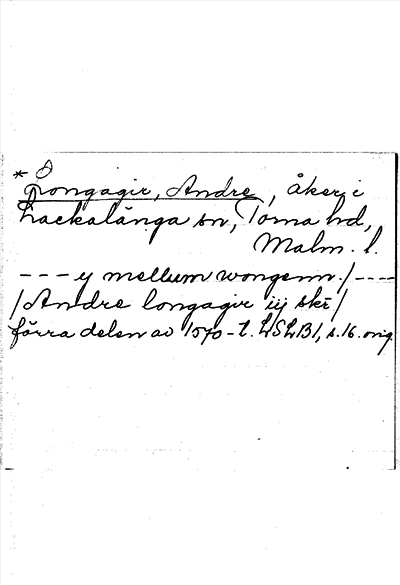 * Longagir, Andre, åker i
Lackalänga sn, Torna hd,
Malm. l.
--- y mellum wongenn / ----
/ Andre longagir iij skr /
förra delen av 1570-t. LSLB1, s. 16. orig.